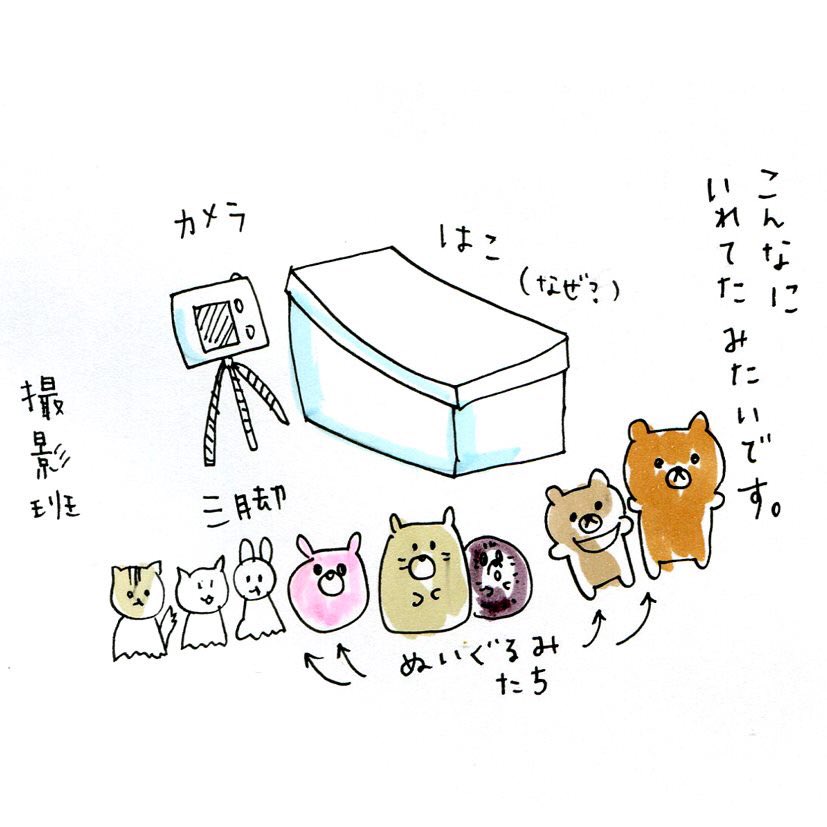 こんなに
いれてたみたいです。
はこ
(なぜ?)
カメラ
三脚
撮影班
ぬいぐるみ
たち